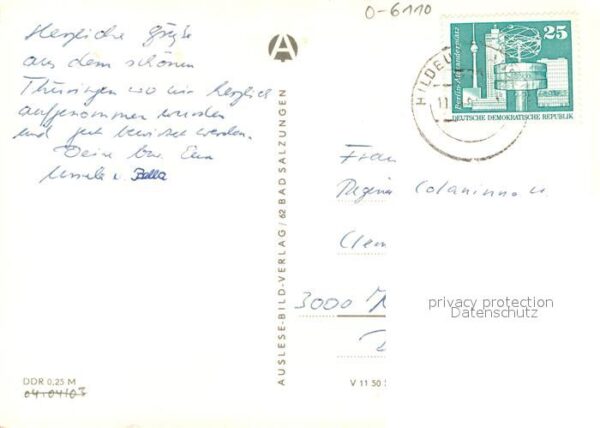 Herzliche Grüße
aus dem schönen
Thüringen wo wir herzlich
aufgenommen wurden
und gut werden.
Deine bzw. Eure
Ursula u. Bella
DDR 0,25 M
04.04/03
A
AUSLESE-BILD-VERLAG/62 BAD SALZUNGEN
V 11 50
0-6110
HILDBU
11
Berlin-Alexanderplatz
25
DEUTSCHE DEMOKRATISCHE REPUBLIK
Frau
Regina
3000
privacy protection
Datenschutz